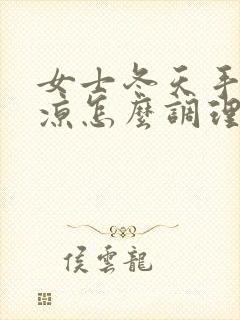 女士冬天手
涼怎麼調理
侯雲龍